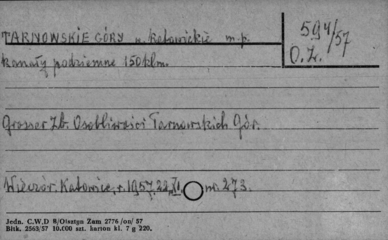 TARNOWSKIE GÓRY w. katowickie m.p.
594/57
O.Z.
kanały podziemne 150 klm.
Grosser Zb. Osobliwości Tarnowskich Gór.
Wieczór. Katowice, r. 1957, 22, XI, nr. 273.
Jedn. C.W.D 8/Olsztyn Zam 2776/on/57
Bltk. 2563/57 10.000 szt. karton kl. 7 g 220.